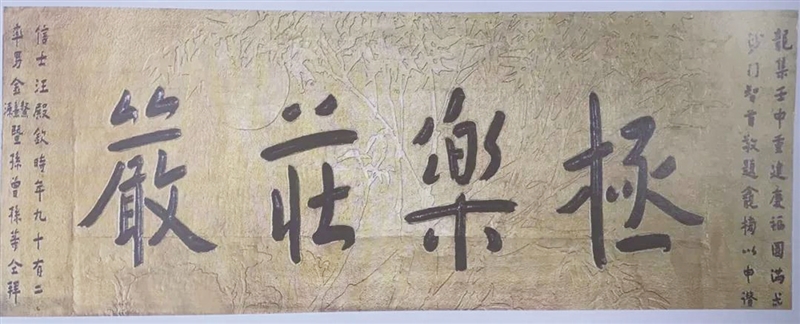 龍集壬申重建慶福圓滿
沙門智首敬題龕楣以申讚
極樂莊嚴
信士汪殿欽時年九十有二
率男金源暨孫曾孫等仝拜